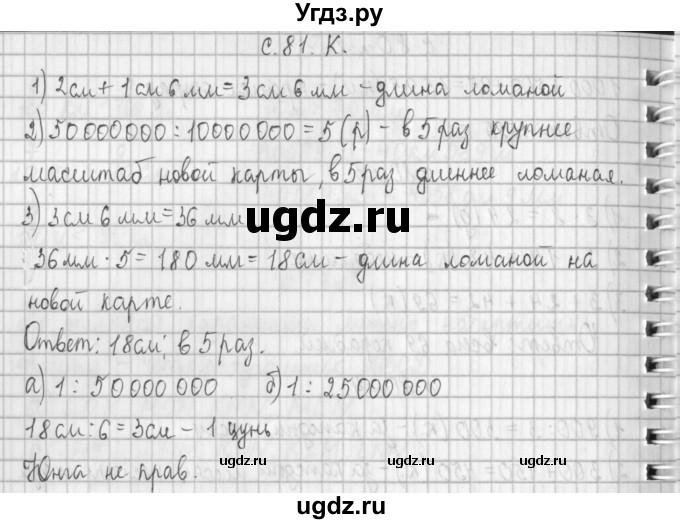 Угдз.ру
с. 81. К.
1) 2 см + 1 см 6 мм = 3 см 6 мм - длина ломаной
2) 50 000 000 : 10 000 000 = 5 (р) - в 5 раз крупнее
масштаб новой карты, в 5 раз длиннее ломаная.
3) 3 см 6 мм = 36 мм
ugdz.ru
36 мм · 5 = 180 мм = 18 см - длина ломаной на
новой карте.
Ответ: 18 см; в 5 раз.
а) 1 : 50 000 000 б) 1 : 25 000 000
18 см : 6 = 3 см - 1 цунь
Юнга не прав.
ugdz.ru ugdz.ru ugdz.ru
ugdz.ru